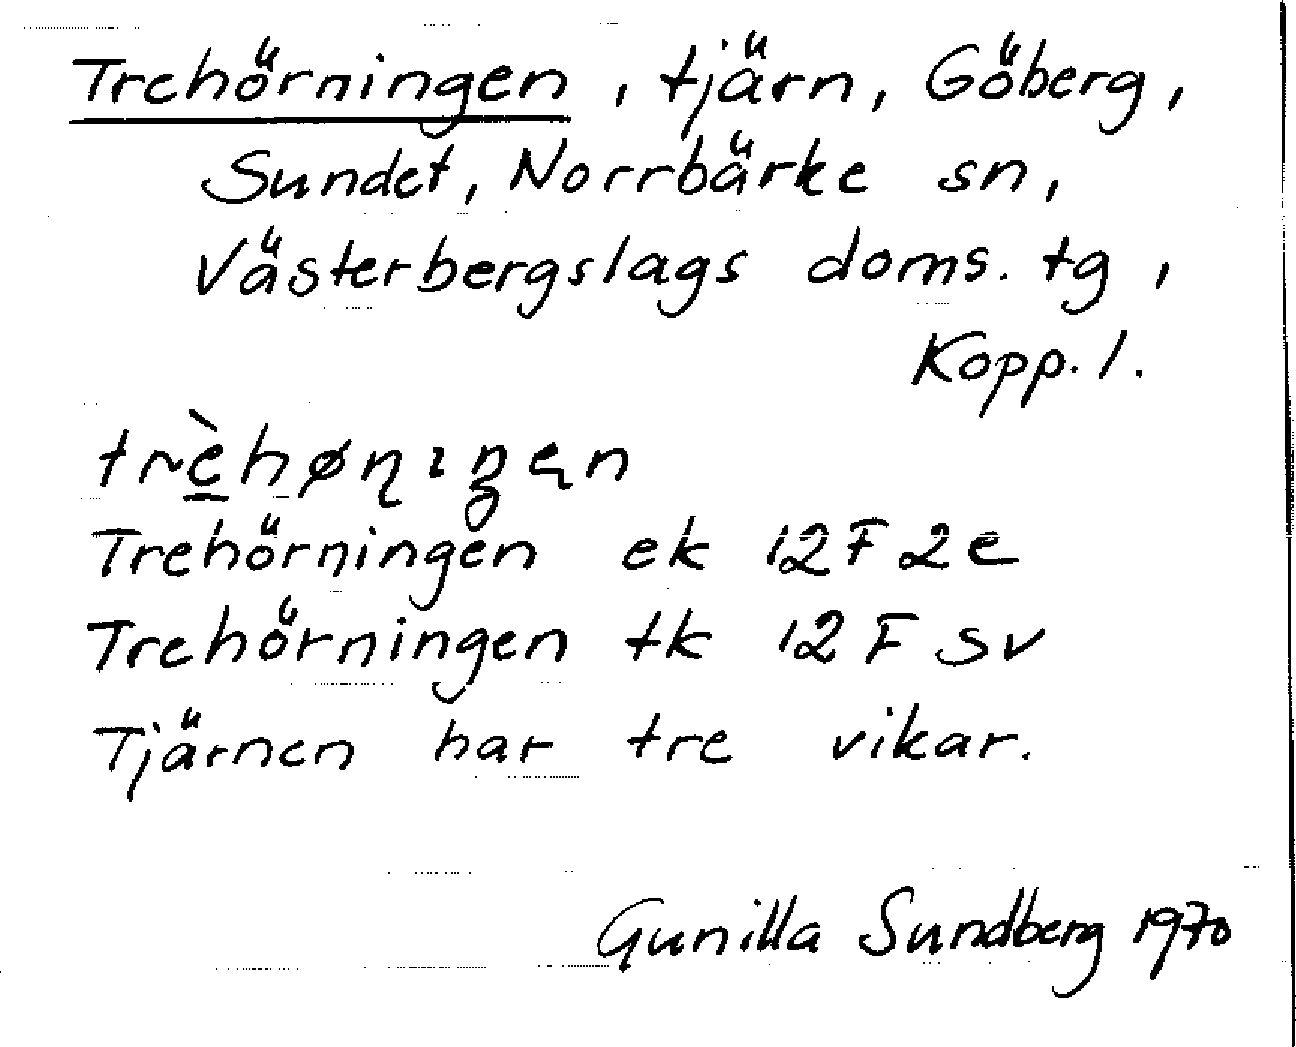 Trehörningen, tjärn, Göberg,
Sundet, Norrbärke sn,
Västerbergslags doms. tg,
Kopp. l.
Trehörningen ek 12F2e
Trehörningen tk 12F SV
Tjärnen har tre vikar.
Gunilla Sundberg 1970